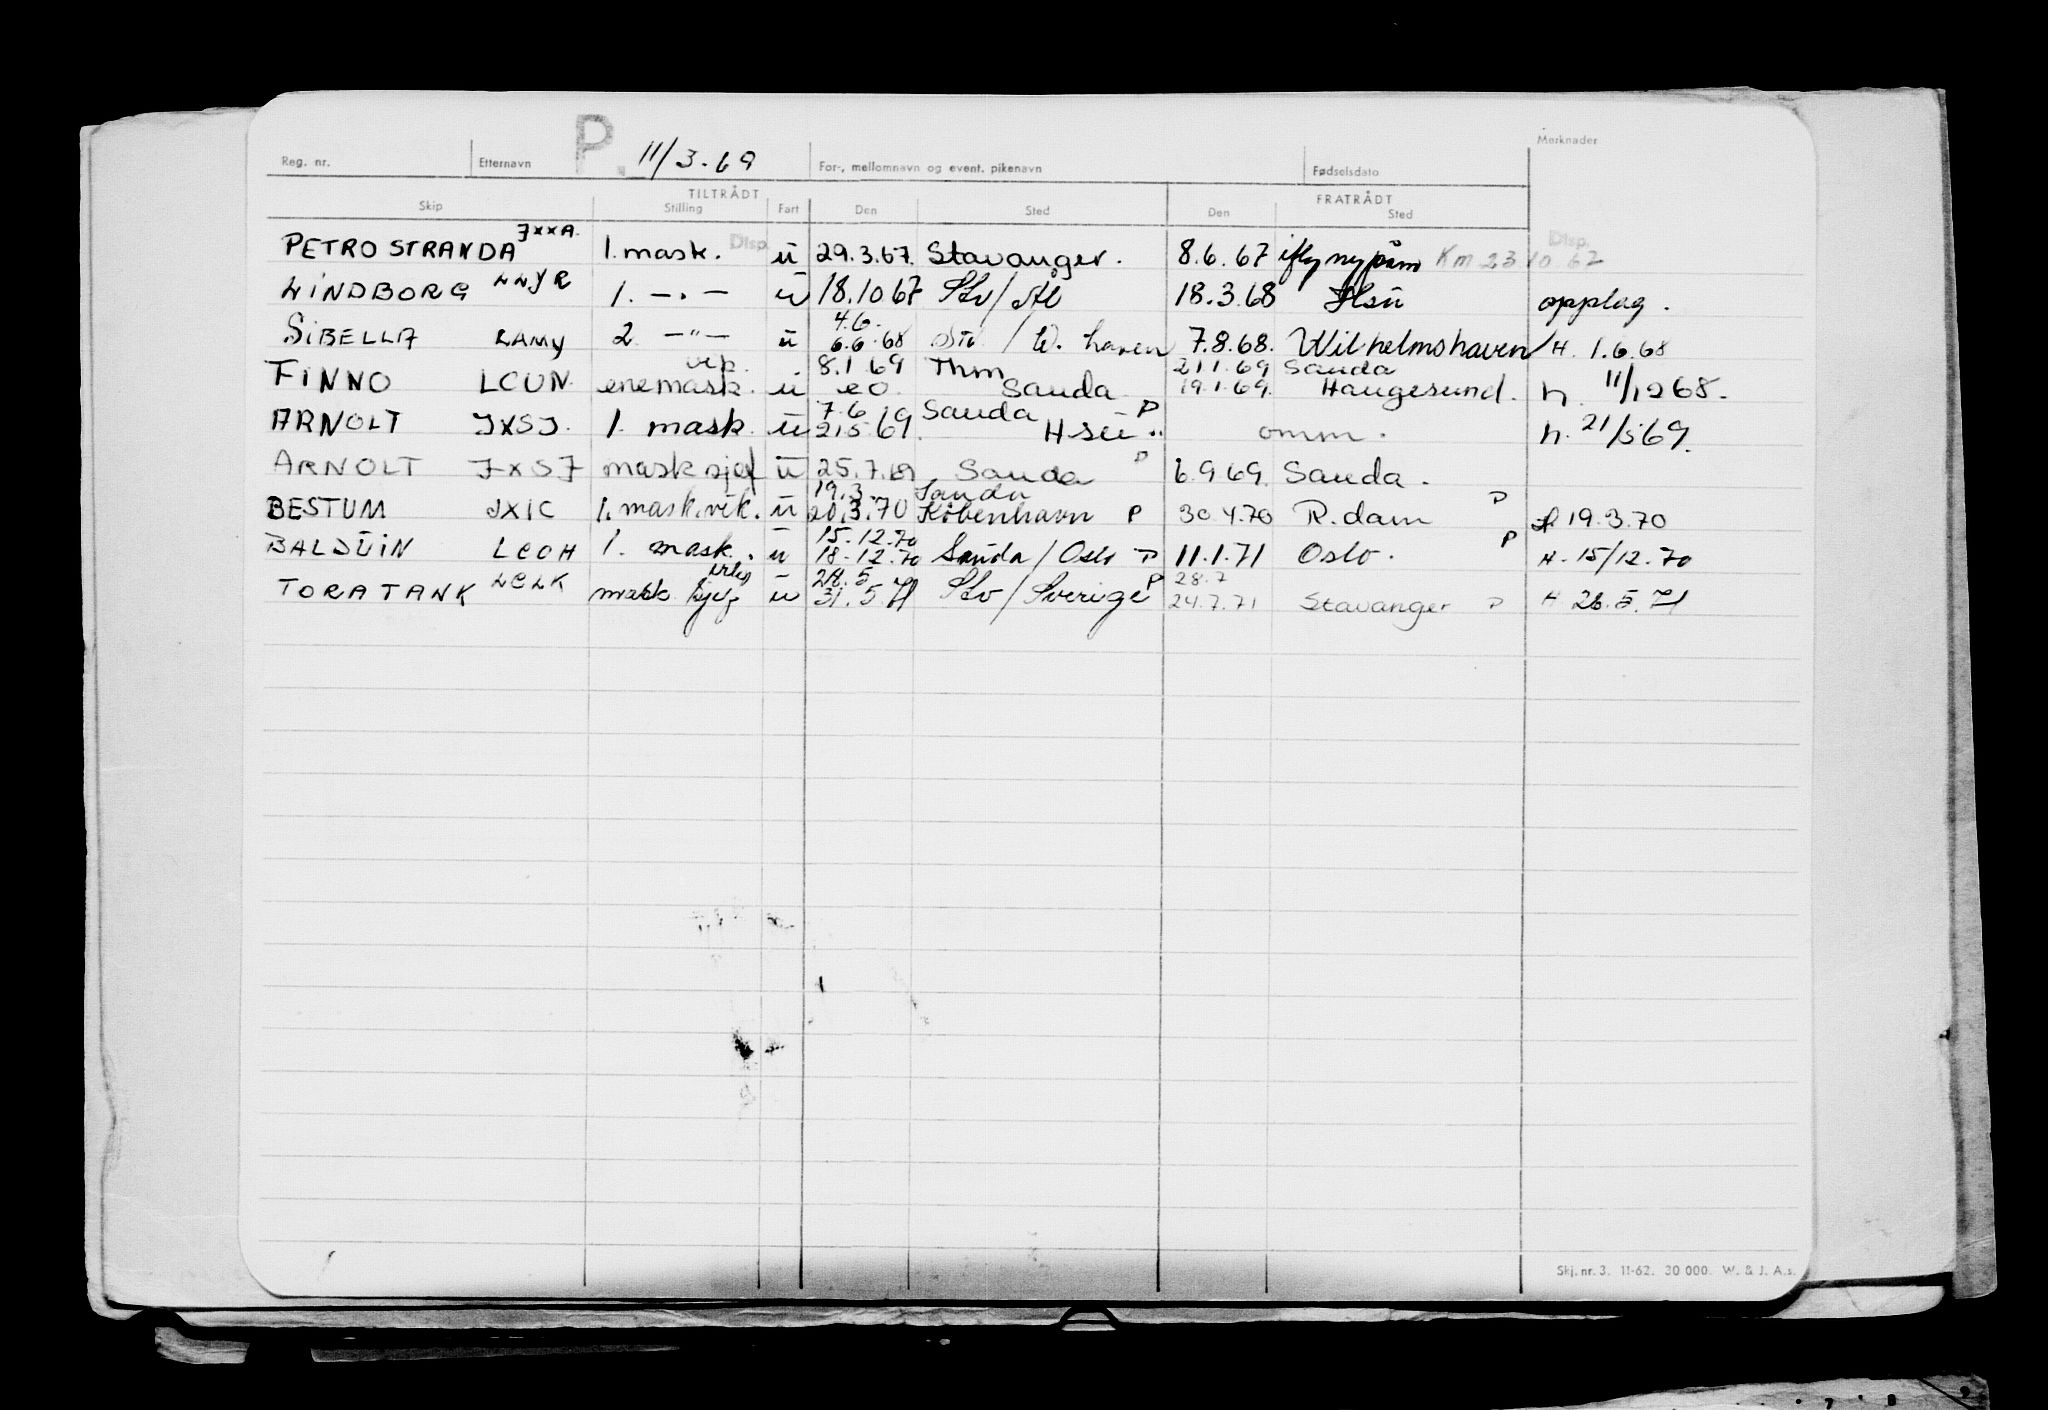 Merknader
Reg. nr. Etternavn P. 11/3.69 For-, mellomnavn og event. pikenavn Fødselsdato
TILTRÅDT FRATRÅDT
Skip Stilling Fart Den Sted Den Sted
PETRO STRANDA JXXA. 1. mask. Disp. ü 29.3.67. Stavanger. 8.6.67 Km 23 10 67 Disp.
LINDBORG LLYR 1. — . — ü 18.10.67 Stv/ 18.3.68 Hsü opplag.
SIBELLA LAMY 2 — " — ü 4.6. 6.6.68 / W. haven 7.8.68. Wilhelmshaven H. 1.6.68
FINNO LCUN. enemask. vik. ü 8.1 69 Thm eo. Sauda 21.1.69 Sauda 19.1.69. Haugesund. h. 11/12 68.
ARNOLT JXSJ. 1. mask. ü 7.6 21.5.69. Sauda P Hsü omm. h. 21/5 69.
ARNOLT JXSJ masksjef ü 25.7.69 Sauda P 6.9 69. Sauda.
BESTUM JXIC 1. mask. vik. ü 19.3. Sauda 20.3.70 København P 30 4.70 R. dam P 19.3.70
BALDUIN LCOH 1. mask. ü 15.12.70 18.12.70 Sauda / Oslo P 11.1.71 Oslo. P H. 15/12.70
TORATANK LCLK mask sjef ü 28.5 31.5.71 Stv / Sverige P 28.7 24.7.71 Stavanger P H 26.5.71
Skj. nr. 3. 11-62. 30 000. W. & J. A.s.